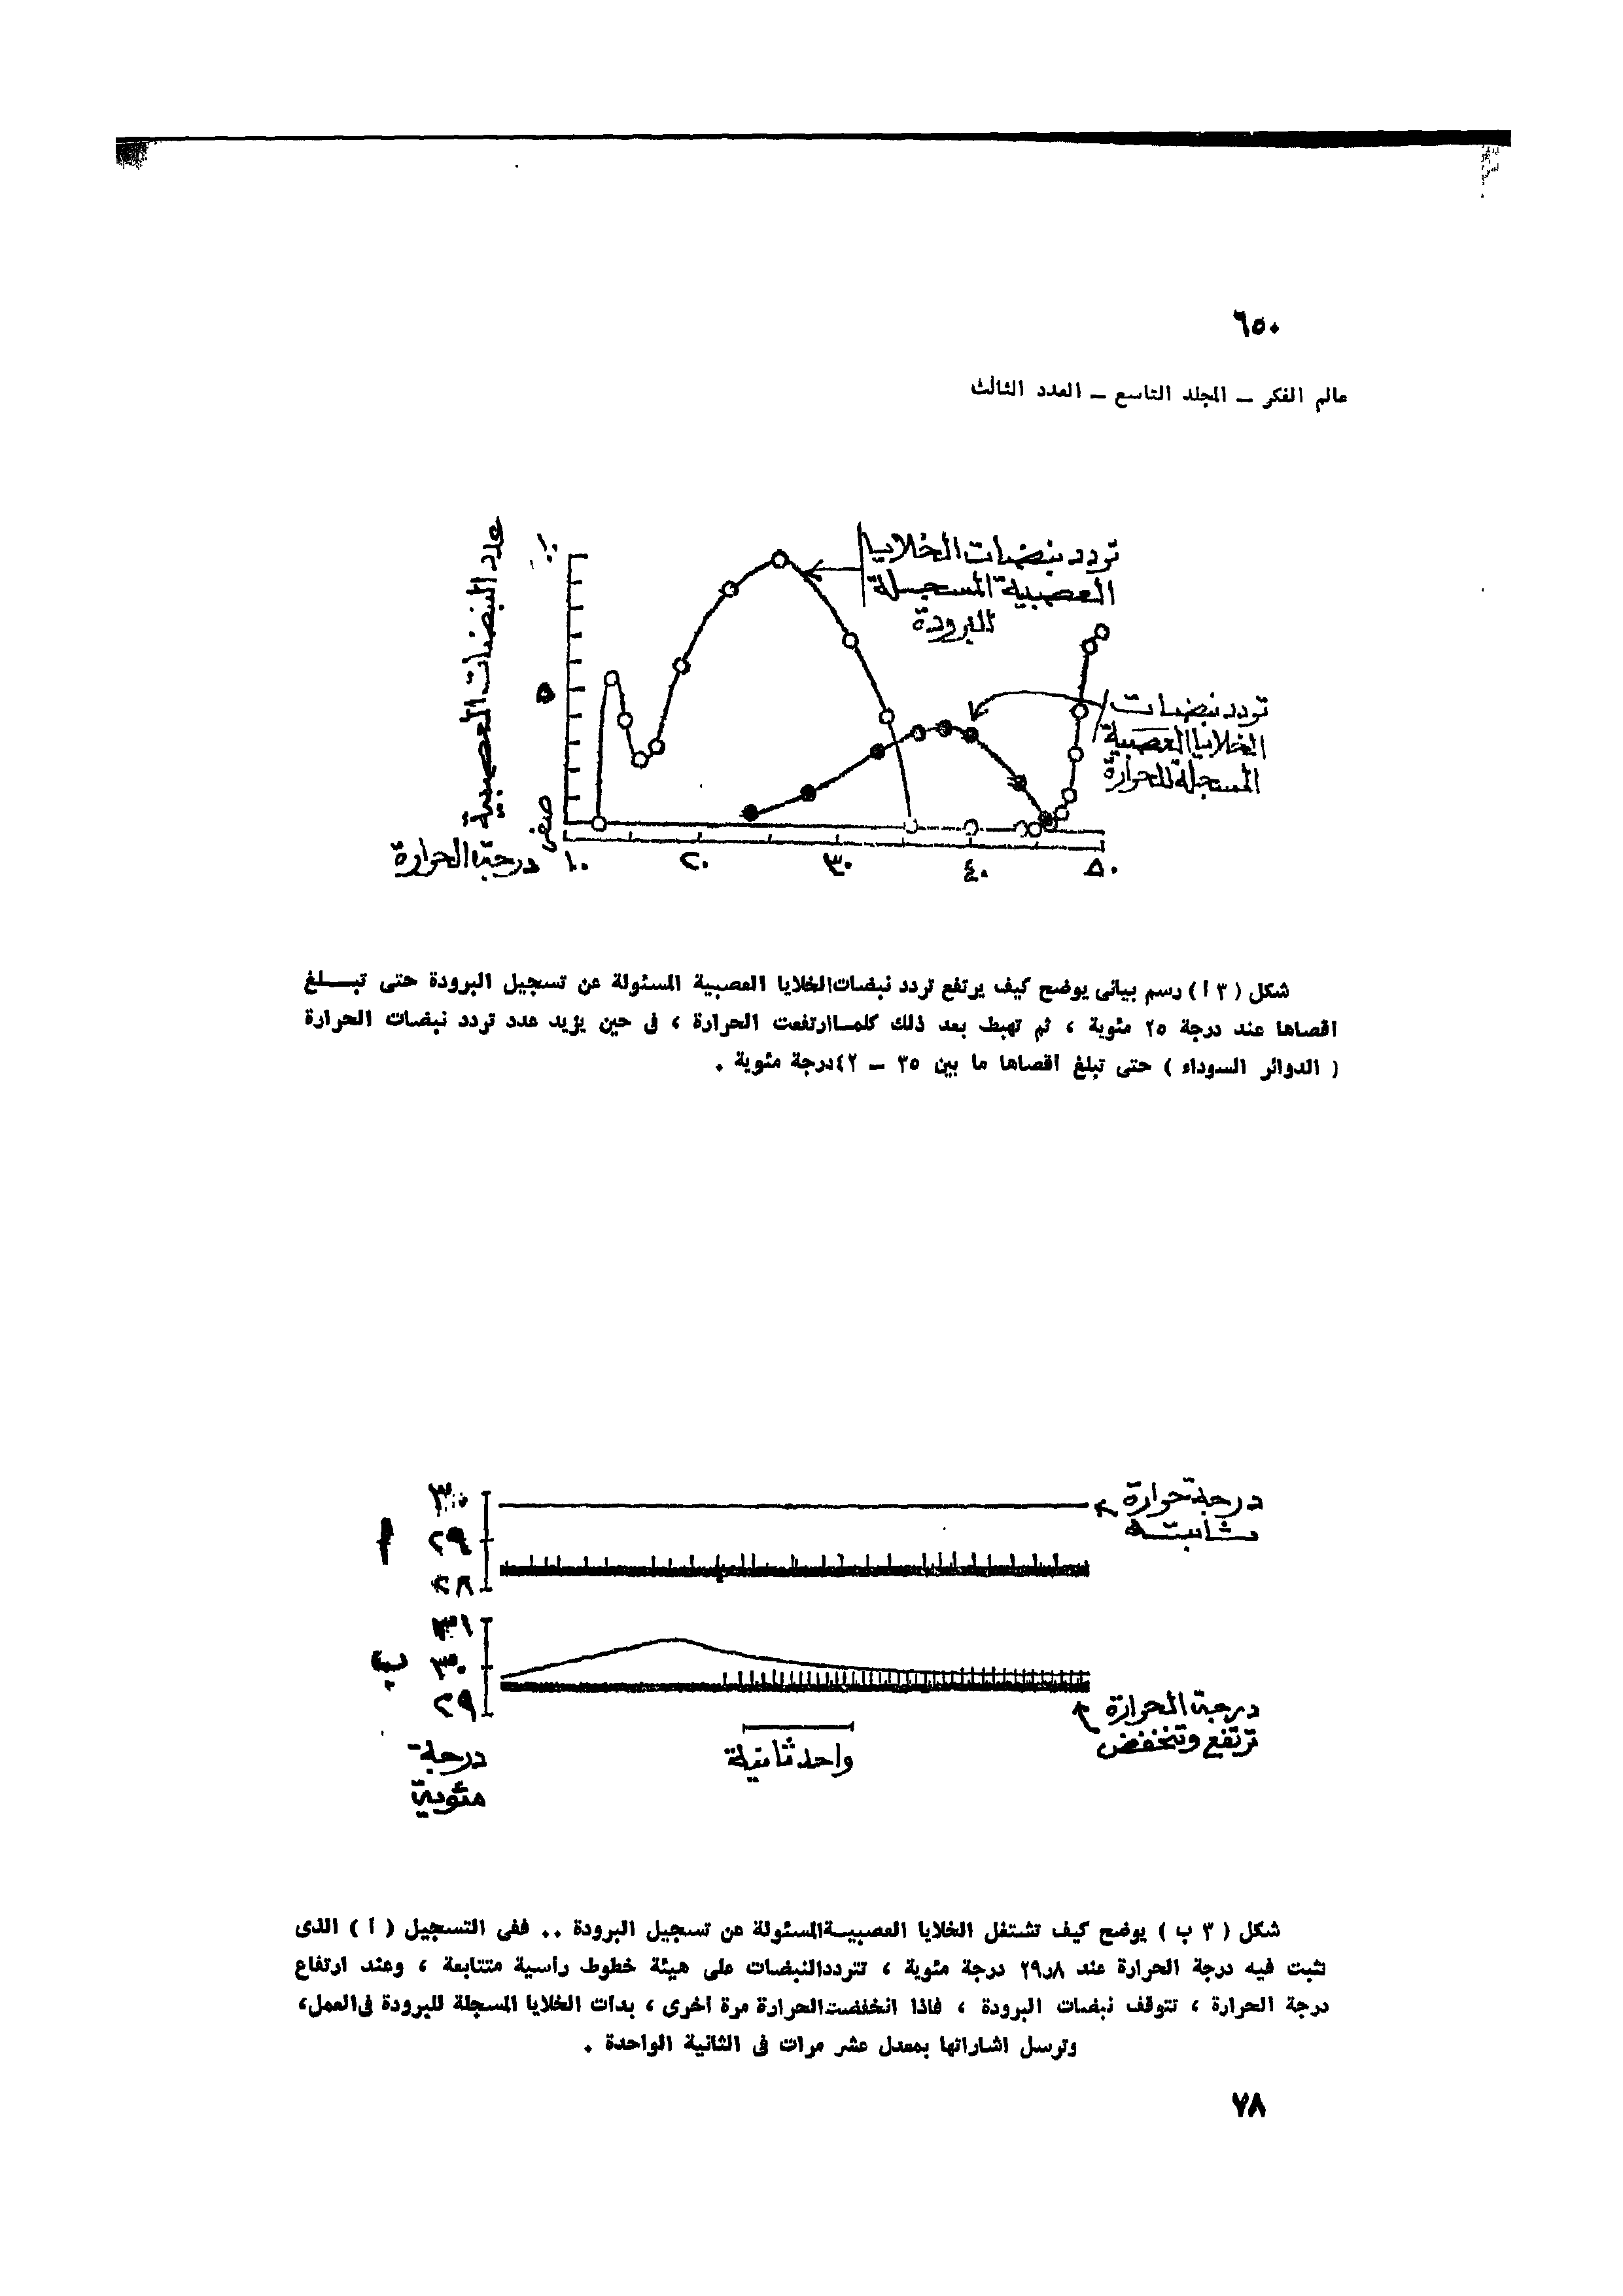 ٦٥٠
عالم الفكر ـ المجلد التاسع ـ العدد الثالث
عدد النبضات العصبية
١٠
٥
صفر
تردد نبضات الخلايا
العصبية المسجلة
للبرودة
تردد نبضات
الخلايا العصبية
المسجلة للحرارة
درجة الحرارة ١٠ ٢٠ ٣٠ ٤٠ ٥٠
شكل ( ٣ أ ) رسم بيانى يوضح كيف يرتفع تردد نبضات الخلايا العصبية المسئولة عن تسجيل البرودة حتى تبـــلغ
اقصاها عند درجة ٢٥ مئوية ، ثم تهبط بعد ذلك كلمـا ارتفعت الحرارة ، فى حين يؤيد عدد تردد نبضات الحرارة
( الدوائر السوداء ) حتى تبلغ اقصاها ما بين ٣٥ ـ ٤٢ درجة مئوية .
أ
٣٠
٢٩
٢٨
درجة حرارة
ثابتة
ب
٣١
٣٠
٢٩
درجة الحرارة
ترتفع وتنخفض
درجة
مئوية
واحد ثانية
شكل ( ٣ ب ) يوضح كيف تشتغل الخلايا العصبيـة المسئولة عن تسجيل البرودة .. ففى التسجيل ( أ ) الذى
تثبت فيه درجة الحرارة عند ٢٩٫٨ درجة مئوية ، تتردد النبضات على هيئة خطوط رأسية متتابعة ، وعند ارتفاع
درجة الحرارة ، تتوقف نبضات البرودة ، فاذا انخفضت الحرارة مرة اخرى ، بدأت الخلايا المسجلة للبرودة فى العمل،
وترسل اشاراتها بمعدل عشر مرات فى الثانية الواحدة .
٧٨